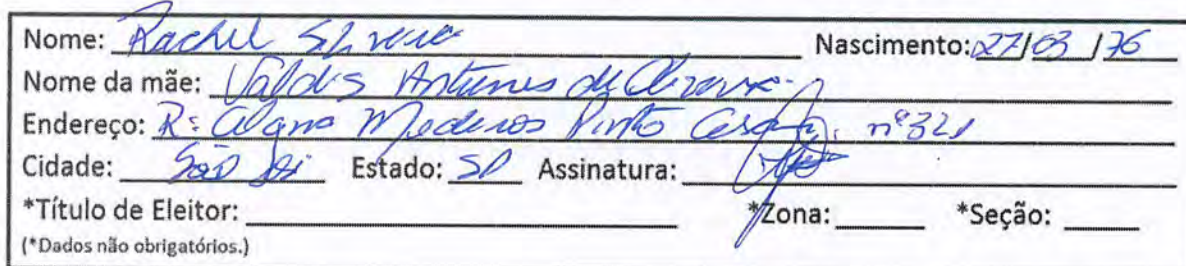 Nome: Rachel Silveira Nascimento: 27/03/76
Nome da mãe: Valdis Antunes de Oliveira
Endereço: R: Medeiros Pinto nº 321
Cidade: São Estado: SP Assinatura:
*Título de Eleitor: *Zona: *Seção:
(*Dados não obrigatórios.)